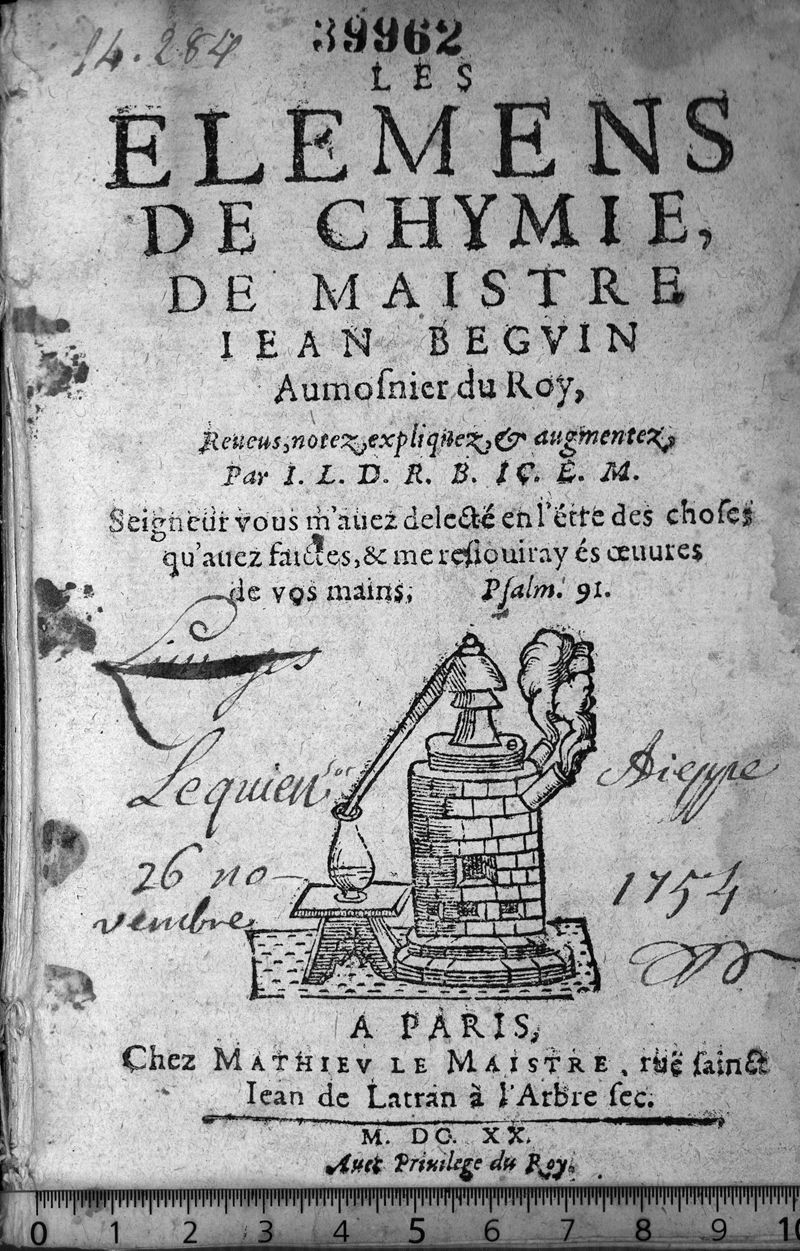 39962
14.284
LES
ELEMENS
DE CHYMIE,
DE MAISTRE
IEAN BEGVIN
Aumoſnier du Roy,
Reueus, notez, expliquez, & augmentez,
Par I. L. D. R. B. IC. E. M.
Seigneur vous m'auez delecté en l'étre des choſes
qu'auez faictes, & me reſiouiray és œuures
de vos mains, Pſalm. 91.
Lequien
Dieppe
26 no-
vembre
1754
A PARIS,
Chez MATHIEV LE MAISTRE, ruë ſainct
Iean de Latran à l'Arbre ſec.
M. DC. XX.
Auec Priuilege du Roy.
0 1 2 3 4 5 6 7 8 9 10